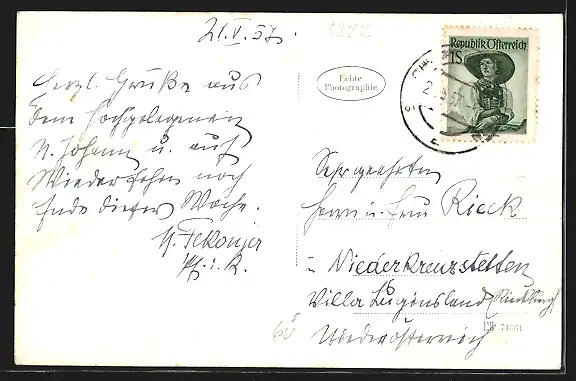 21.V.57.
1272
Herzl. Grüße aus
dem hochgelegenen
St. Johann u. auf
Wiedersehen noch
Ende dieser Woche.
Echte
Photographie
Republik Österreich
1S
Sehr geehrten
Herrn u. Frau Rieck
Niederkreuzstetten
Villa Luginsland
Niederösterreich
60